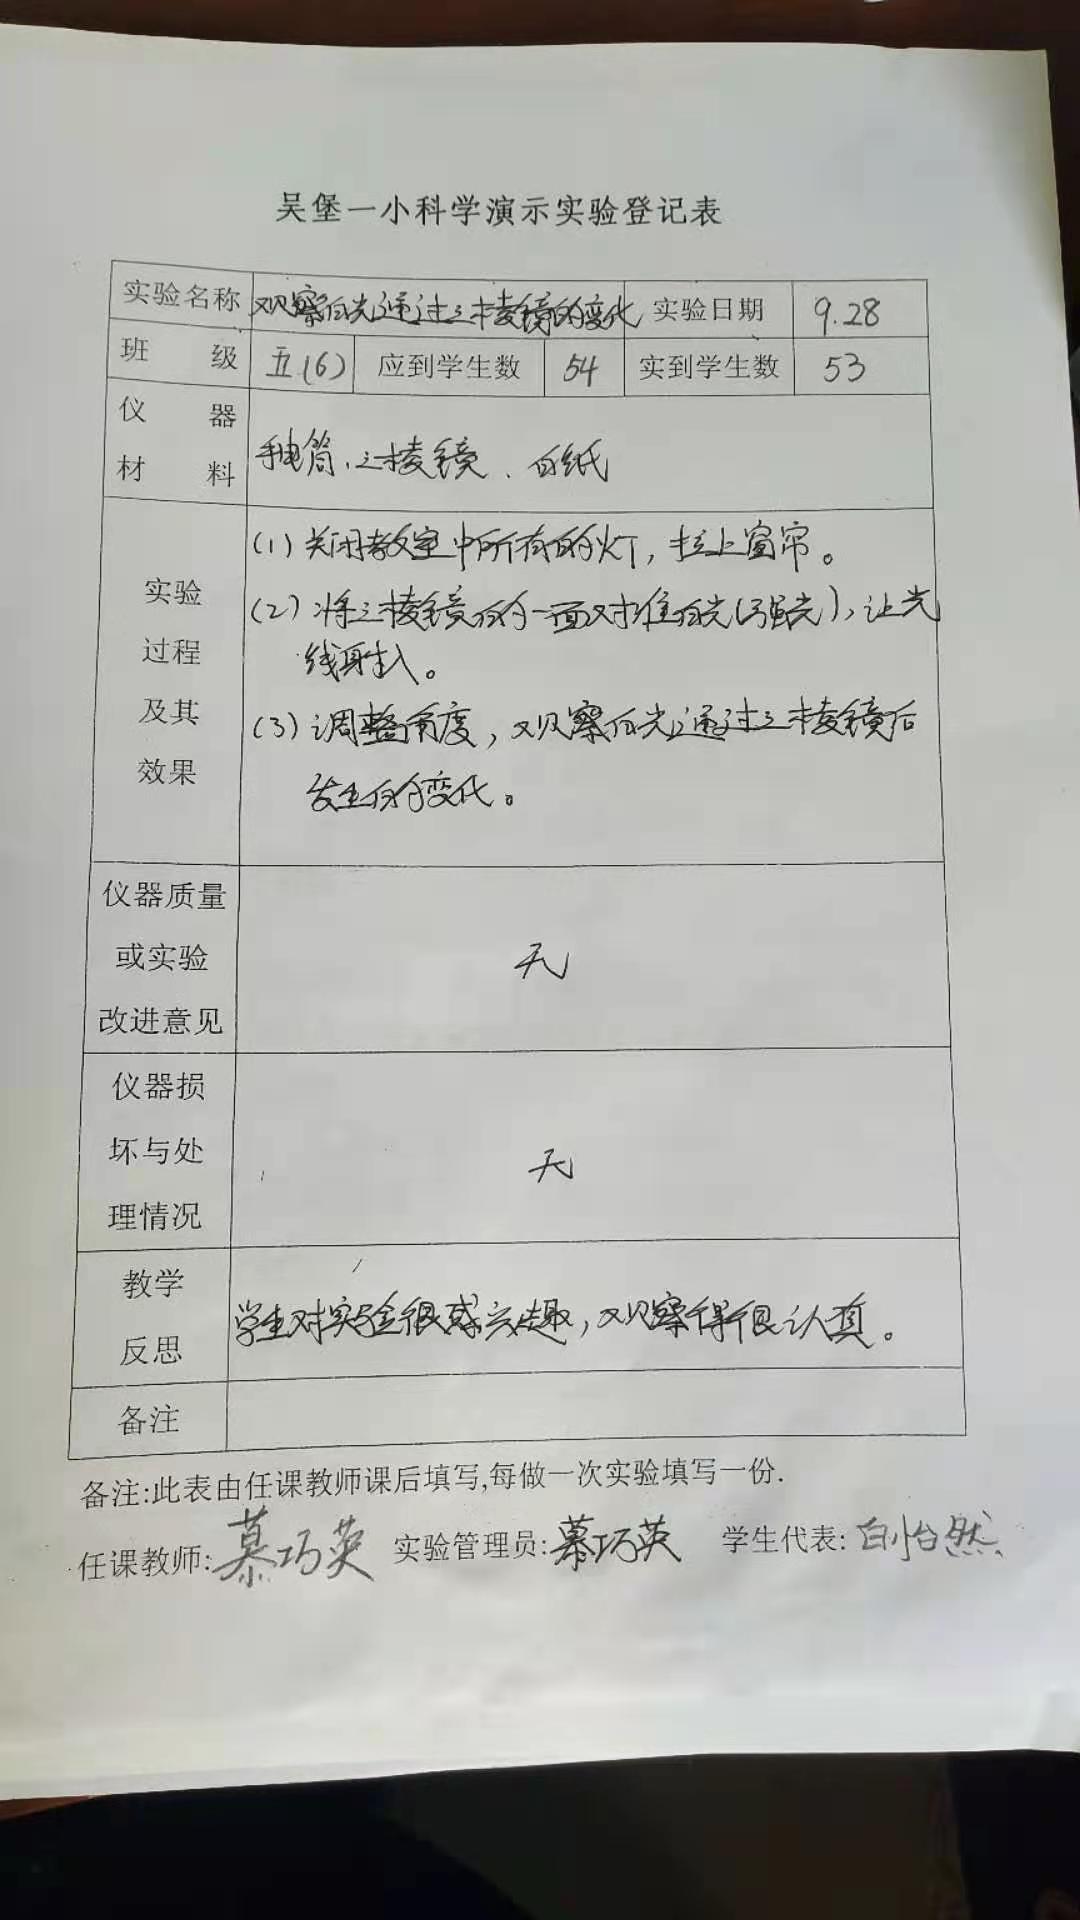 吴堡一小科学演示实验登记表
实验名称 观察白光通过三棱镜的变化 实验日期 9.28
班级 五(6) 应到学生数 54 实到学生数 53
仪器
材料
手电筒、三棱镜、白纸
实验
过程
及其
效果
(1)关闭教室中所有的灯,拉上窗帘。
(2)将三棱镜的一面对准白光(强光),让光
线射入。
(3)调整角度,观察白光通过三棱镜后
发生的变化。
仪器质量
或实验
改进意见
无
仪器损
坏与处
理情况
无
教学
反思
学生对实验很感兴趣,观察得很认真。
备注
备注:此表由任课教师课后填写,每做一次实验填写一份.
任课教师:慕巧英 实验管理员:慕巧英 学生代表:白怡然